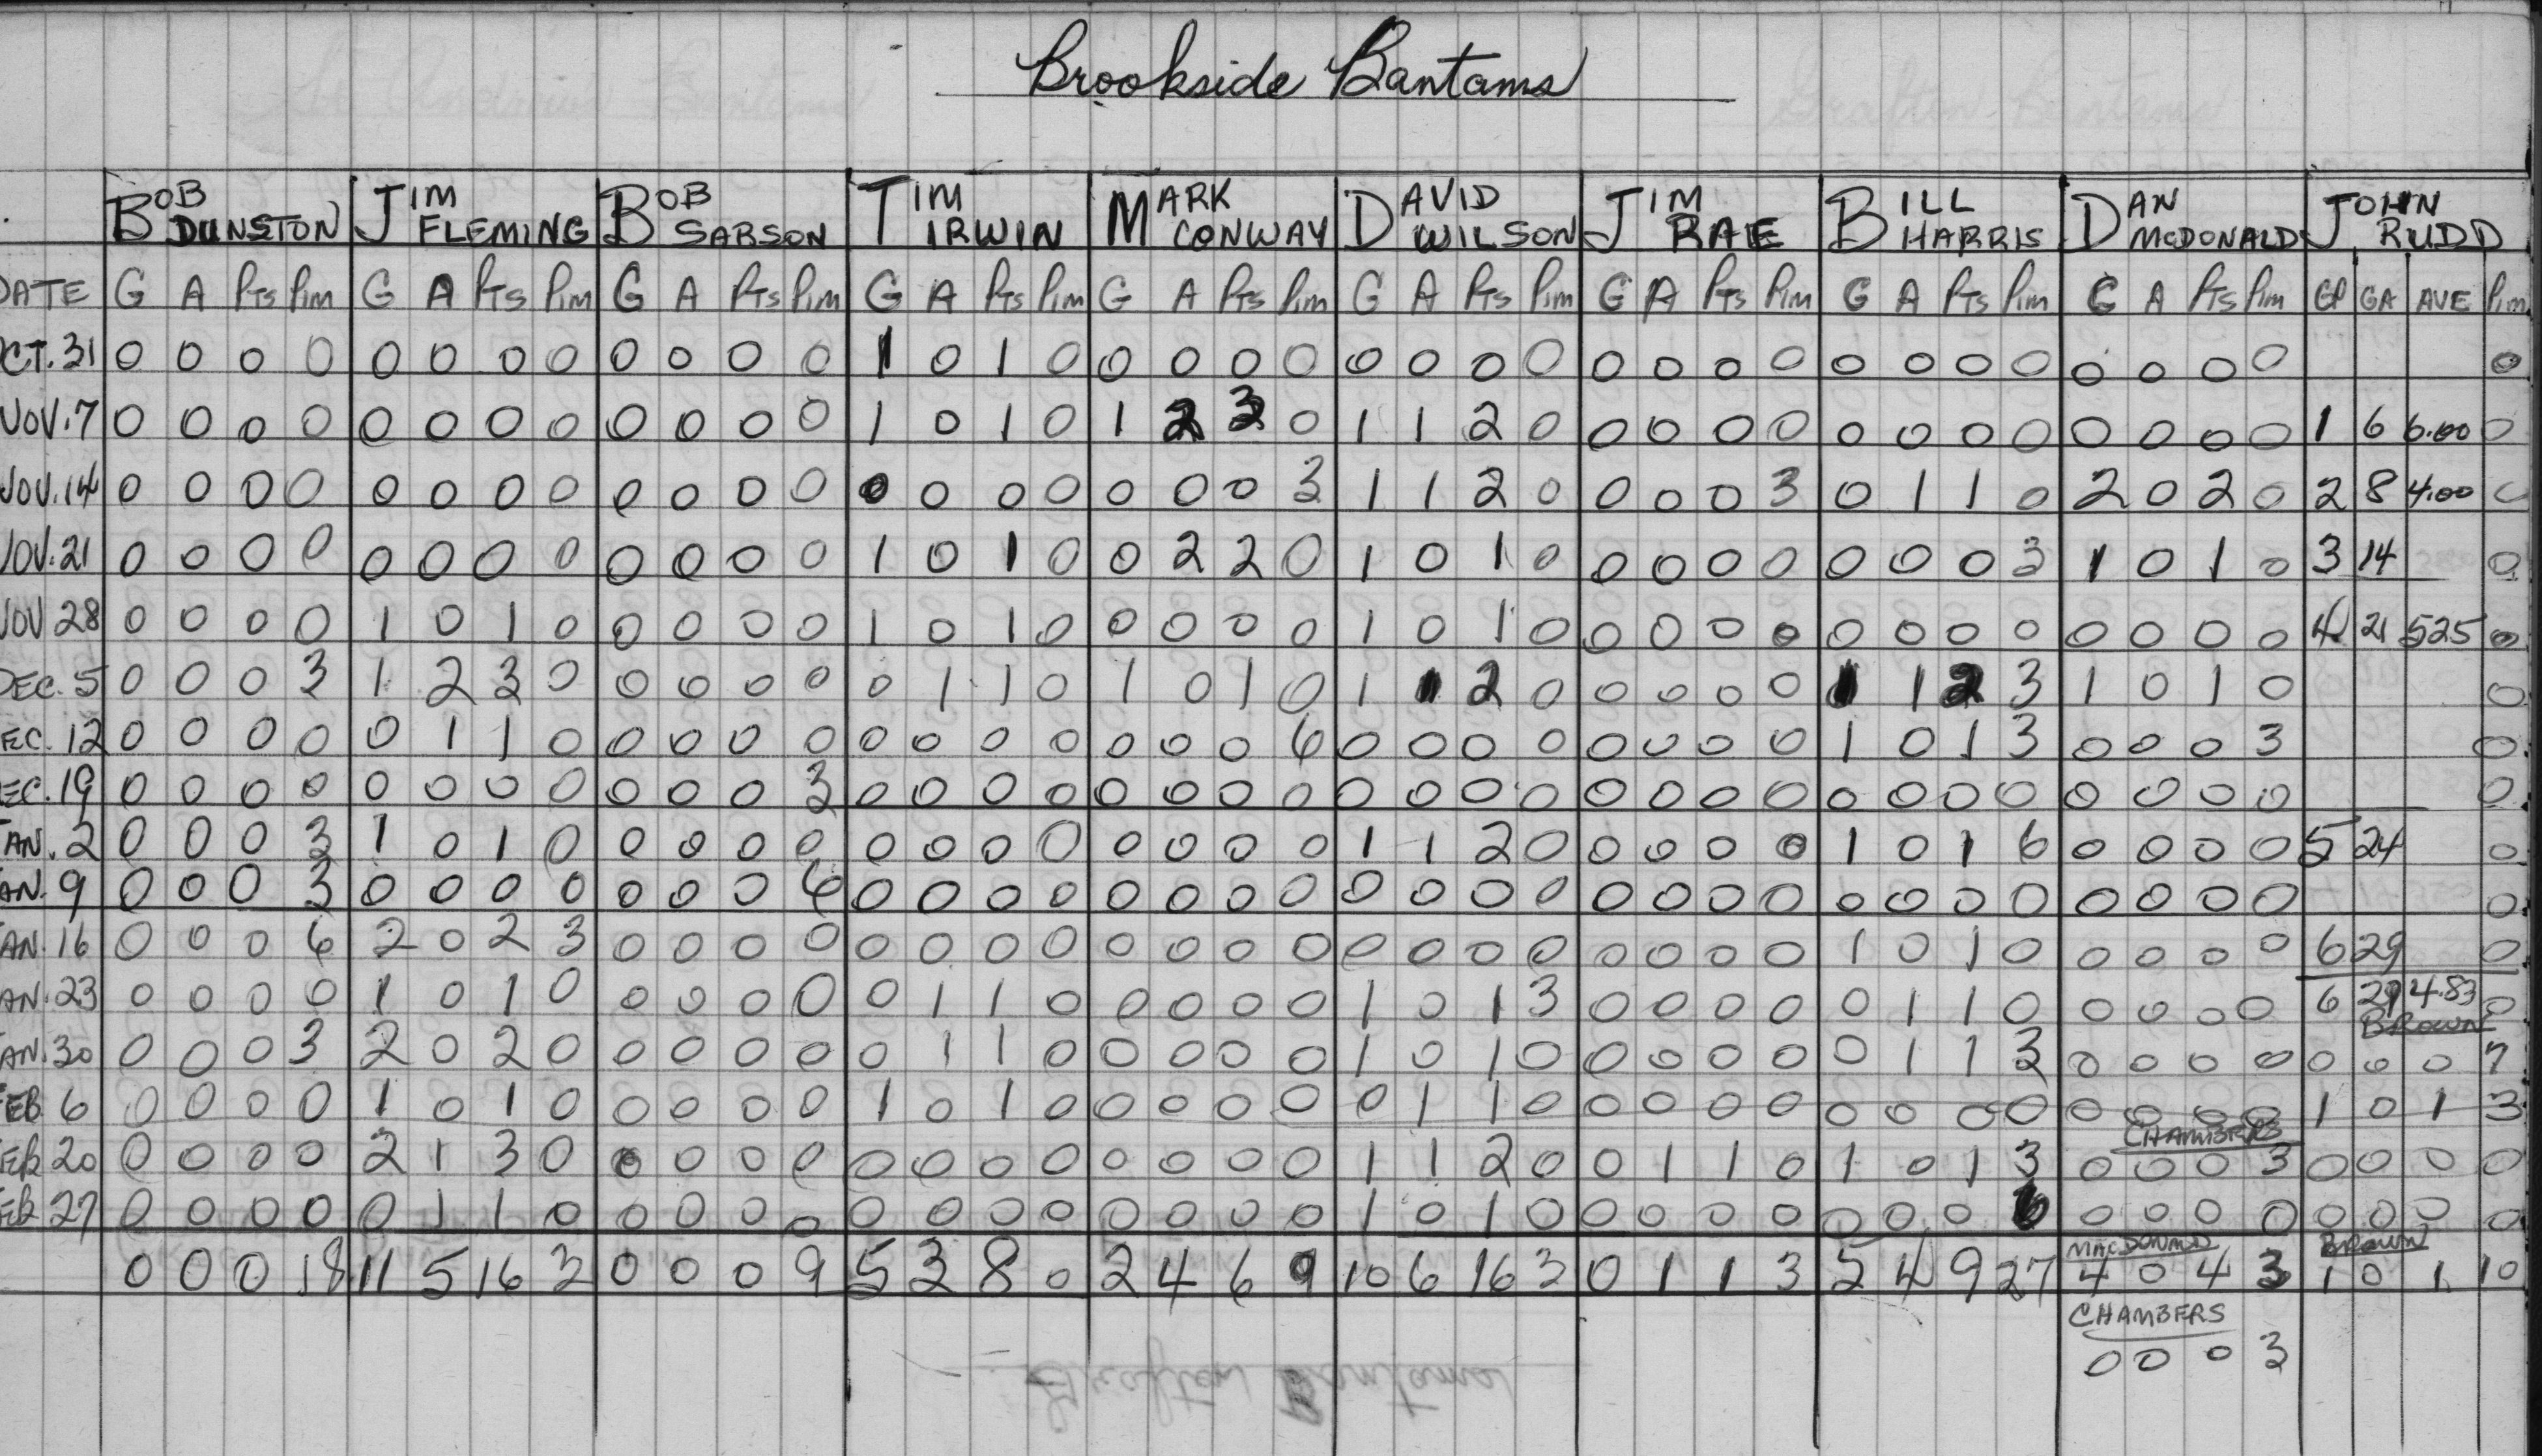 Brookside Bantams
BOB DUNSTON JIM FLEMING BOB SARSON TIM IRWIN MARK CONWAY DAVID WILSON JIM RAE BILL HARRIS DAN MCDONALD JOHN RUDD
DATE G A PTS PIM G A PTS PIM G A PTS PIM G A PTS PIM G A PTS PIM G A PTS PIM G A PTS PIM G A PTS PIM G A PTS PIM GP GA AVE PIM
CT. 31 0 0 0 0 0 0 0 0 0 0 0 0 1 0 1 0 0 0 0 0 0 0 0 0 0 0 0 0 0 0 0 0 0 0 0 0 0
NOV. 7 0 0 0 0 0 0 0 0 0 0 0 0 1 0 1 0 1 2 3 0 1 1 2 0 0 0 0 0 0 0 0 0 0 0 0 0 1 6 6.00 0
NOV. 14 0 0 0 0 0 0 0 0 0 0 0 0 0 0 0 0 0 0 0 3 1 1 2 0 0 0 0 3 0 1 1 0 2 0 2 0 2 8 4.00 0
NOV. 21 0 0 0 0 0 0 0 0 0 0 0 0 1 0 1 0 0 2 2 0 1 0 1 0 0 0 0 0 0 0 0 3 1 0 1 0 3 14 0
NOV 28 0 0 0 0 1 0 1 0 0 0 0 0 1 0 1 0 0 0 0 0 1 0 1 0 0 0 0 0 0 0 0 0 0 0 0 0 4 21 525 0
DEC. 5 0 0 0 3 1 2 3 0 0 0 0 0 0 1 1 0 1 0 1 0 1 1 2 0 0 0 0 0 1 1 2 3 1 0 1 0 0
EC. 12 0 0 0 0 0 1 1 0 0 0 0 0 0 0 0 0 0 0 0 6 0 0 0 0 0 0 0 0 1 0 1 3 0 0 0 3 0
EC. 19 0 0 0 0 0 0 0 0 0 0 0 3 0 0 0 0 0 0 0 0 0 0 0 0 0 0 0 0 0 0 0 0 0 0 0 0 0
AN. 2 0 0 0 3 1 0 1 0 0 0 0 0 0 0 0 0 0 0 0 0 1 1 2 0 0 0 0 0 1 0 1 6 0 0 0 0 5 24 0
AN. 9 0 0 0 3 0 0 0 0 0 0 0 6 0 0 0 0 0 0 0 0 0 0 0 0 0 0 0 0 0 0 0 0 0 0 0 0 0
AN. 16 0 0 0 6 2 0 2 3 0 0 0 0 0 0 0 0 0 0 0 0 0 0 0 0 0 0 0 0 1 0 1 0 0 0 0 0 6 29 0
AN. 23 0 0 0 0 1 0 1 0 0 0 0 0 0 1 1 0 0 0 0 0 1 0 1 3 0 0 0 0 0 1 1 0 0 0 0 0 6 29 4.83 0
BROWN
AN. 30 0 0 0 3 2 0 2 0 0 0 0 0 0 1 1 0 0 0 0 0 1 0 1 0 0 0 0 0 0 1 1 3 0 0 0 0 0 0 0 7
EB 6 0 0 0 0 1 0 1 0 0 0 0 0 1 0 1 0 0 0 0 0 0 1 1 0 0 0 0 0 0 0 0 0 0 0 0 0 1 0 1 3
CHAMBERS
EB 20 0 0 0 0 2 1 3 0 0 0 0 0 0 0 0 0 0 0 0 0 1 1 2 0 0 1 1 0 1 0 1 3 0 0 0 3 0 0 0 0
EB 27 0 0 0 0 0 1 1 0 0 0 0 0 0 0 0 0 0 0 0 0 1 0 1 0 0 0 0 0 0 0 0 6 0 0 0 0 0 0 0 0
MACDONALD BROWN
0 0 0 18 11 5 16 3 0 0 0 9 5 3 8 0 2 4 6 9 10 6 16 3 0 1 1 3 5 4 9 27 4 0 4 3 1 0 1 10
CHAMBERS
0 0 0 3